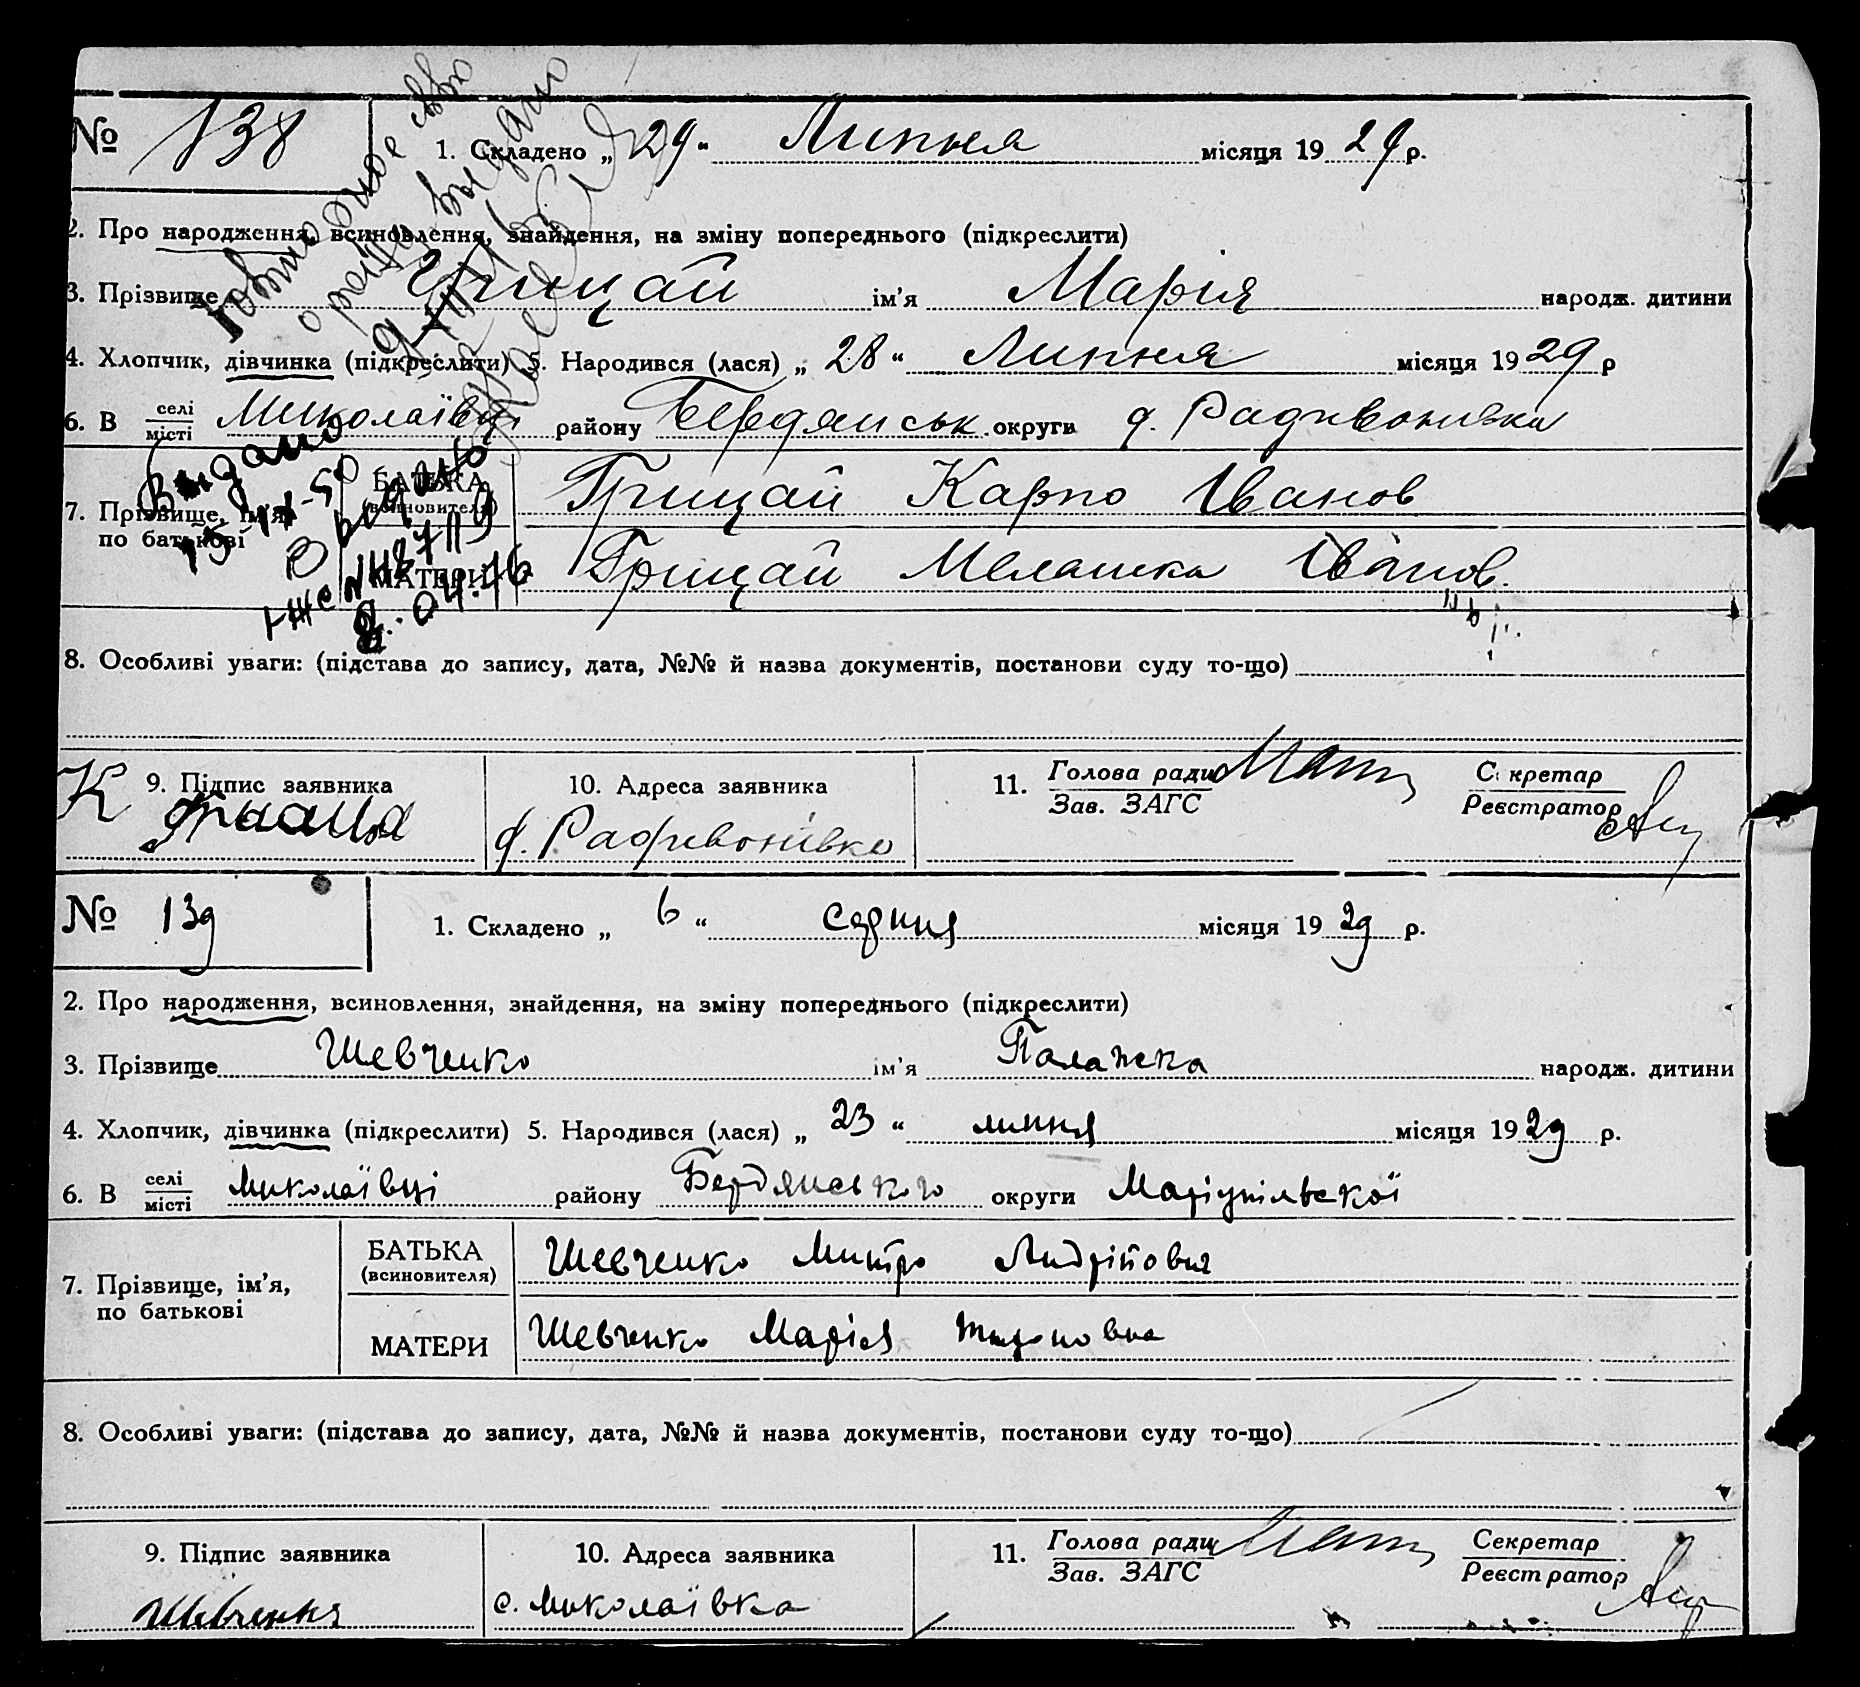 № 138 1. Складено „ 29 “ Липня місяця 19 29 р.
2. Про народження, всиновлення, знайдення, на зміну попереднього (підкреслити)
3. Прізвище Грицай ім'я Марія народж. дитини
4. Хлопчик, дівчинка (підкреслити) 5. Народився (лася) „ 28 “ Липня місяця 19 29 р
6. В селі Миколаївці району Бердянськ округи
місті
Видано
15-IX-50
7. Прізвище, ім'я, по батькові
БАТЬКА (всиновителя) Грицай Карпо Іванов
МАТЕРИ Грицай Мелашка Іванов.
8. Особливі уваги: (підстава до запису, дата, №№ й назва документів, постанови суду то-що)
9. Підпис заявника 10. Адреса заявника 11. Голова ради Секретар
Зав. ЗАГС Реєстратор
К
№ 139 1. Складено „ 6 “ серпня місяця 19 29 р.
2. Про народження, всиновлення, знайдення, на зміну попереднього (підкреслити)
3. Прізвище Шевченко ім'я Палажка народж. дитини
4. Хлопчик, дівчинка (підкреслити) 5. Народився (лася) „ 23 “ липня місяця 19 29 р.
6. В селі Миколаївці району Бердянського округи Маріупільскої
місті
7. Прізвище, ім'я, по батькові
БАТЬКА (всиновителя) Шевченко Митро Андрійович
МАТЕРИ Шевченко Марія
8. Особливі уваги: (підстава до запису, дата, №№ й назва документів, постанови суду то-що)
9. Підпис заявника 10. Адреса заявника 11. Голова ради Секретар
Зав. ЗАГС Реєстратор
Шевченко с. Миколаївка